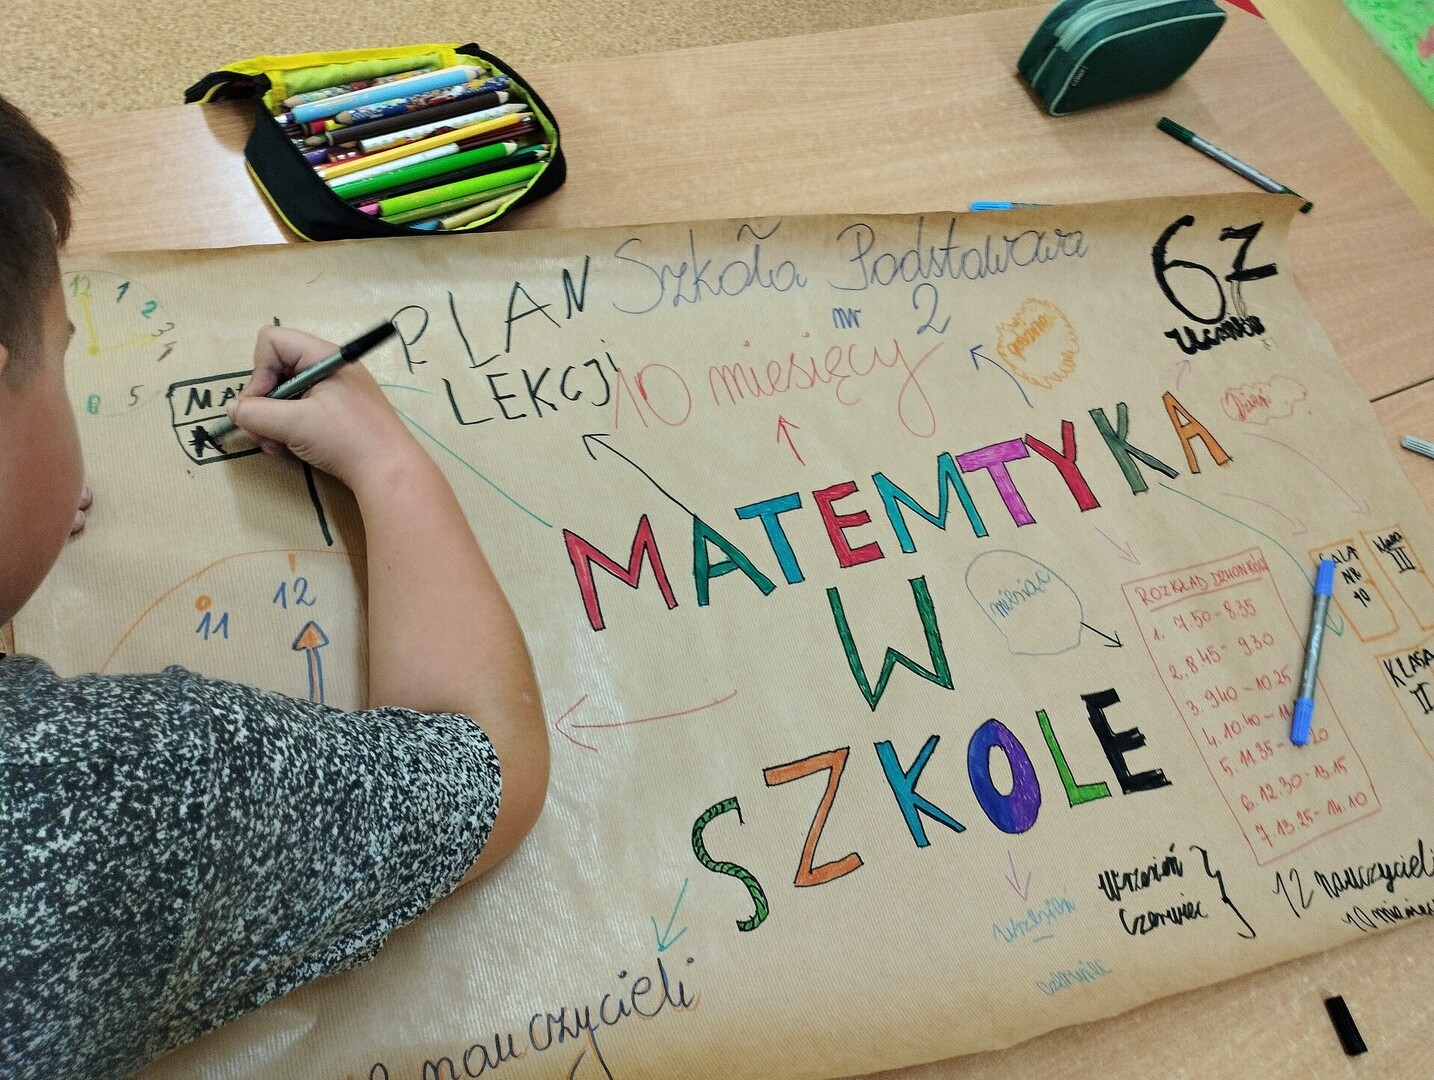 PLAN
LEKCJI
Szkoła Podstawowa
nr 2
10 miesięcy
67
uczniów
12 1 2 3
5
MA
12
11
MATEMTYKA
W
SZKOLE
miesiąc
ROZKŁAD DZWONKÓW
1. 7.50-8.35
2. 8.45-9.30
3. 9.40-10.25
4. 10.40-11
5. 11.35- 20
6. 12.30-13.15
7. 13.25-14.10
SALA
NR
10
klasa
III
KLASA
II
wrzesień
czerwiec
Wrzesień
Czerwiec
12 nauczycieli
10 miesięc
nauczycieli